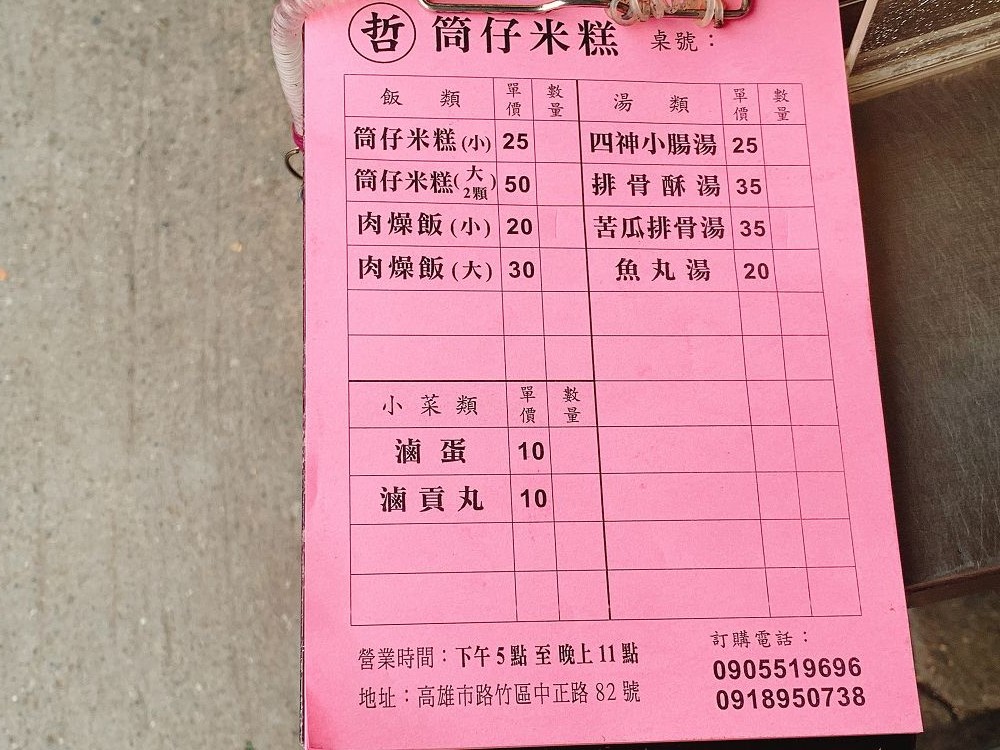 哲 筒仔米糕 桌號：
飯類 單價 數量 湯類 單價 數量
筒仔米糕(小) 25 四神小腸湯 25
筒仔米糕(大2顆) 50 排骨酥湯 35
肉燥飯(小) 20 苦瓜排骨湯 35
肉燥飯(大) 30 魚丸湯 20
小菜類 單價 數量
滷蛋 10
滷貢丸 10
營業時間：下午5點至晚上11點
地址：高雄市路竹區中正路82號
訂購電話：
0905519696
0918950738